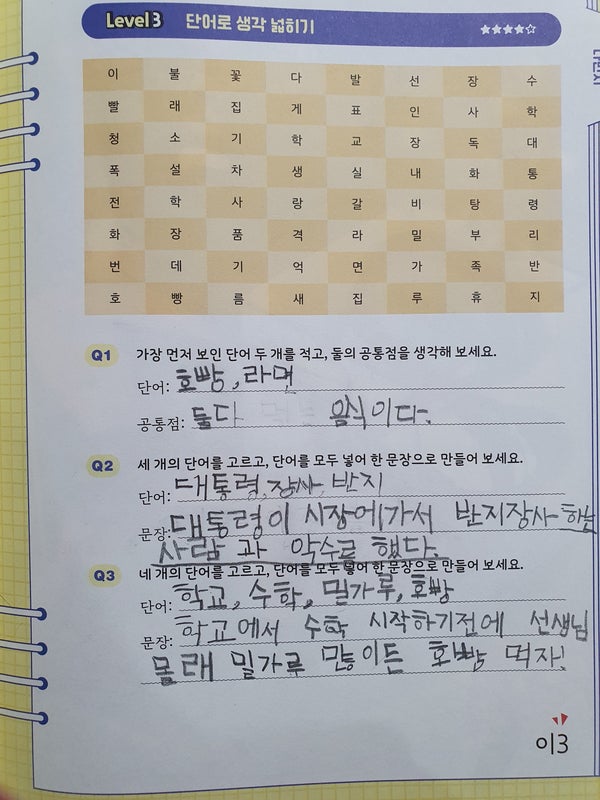 Level 3 단어로 생각 넓히기 ★★★★☆
이 불 꽃 다 발 선 장 수
빨 래 집 게 표 인 사 학
청 소 기 학 교 장 독 대
폭 설 차 생 실 내 화 통
전 학 사 랑 갈 비 탕 령
화 장 품 격 라 밀 부 리
번 데 기 억 면 가 족 반
호 빵 름 새 집 루 휴 지
Q1 가장 먼저 보인 단어 두 개를 적고, 둘의 공통점을 생각해 보세요.
단어: 호빵, 라면
공통점: 둘다 음식이다.
Q2 세 개의 단어를 고르고, 단어를 모두 넣어 한 문장으로 만들어 보세요.
단어: 대통령, 장사, 반지
문장: 대통령이 시장에가서 반지장사하는
사람과 악수를 했다.
Q3 네 개의 단어를 고르고, 단어를 모두 넣어 한 문장으로 만들어 보세요.
단어: 학교, 수학, 밀가루, 호빵
문장: 학교에서 수학 시작하기전에 선생님
몰래 밀가루 많이든 호빵 먹자!
이3